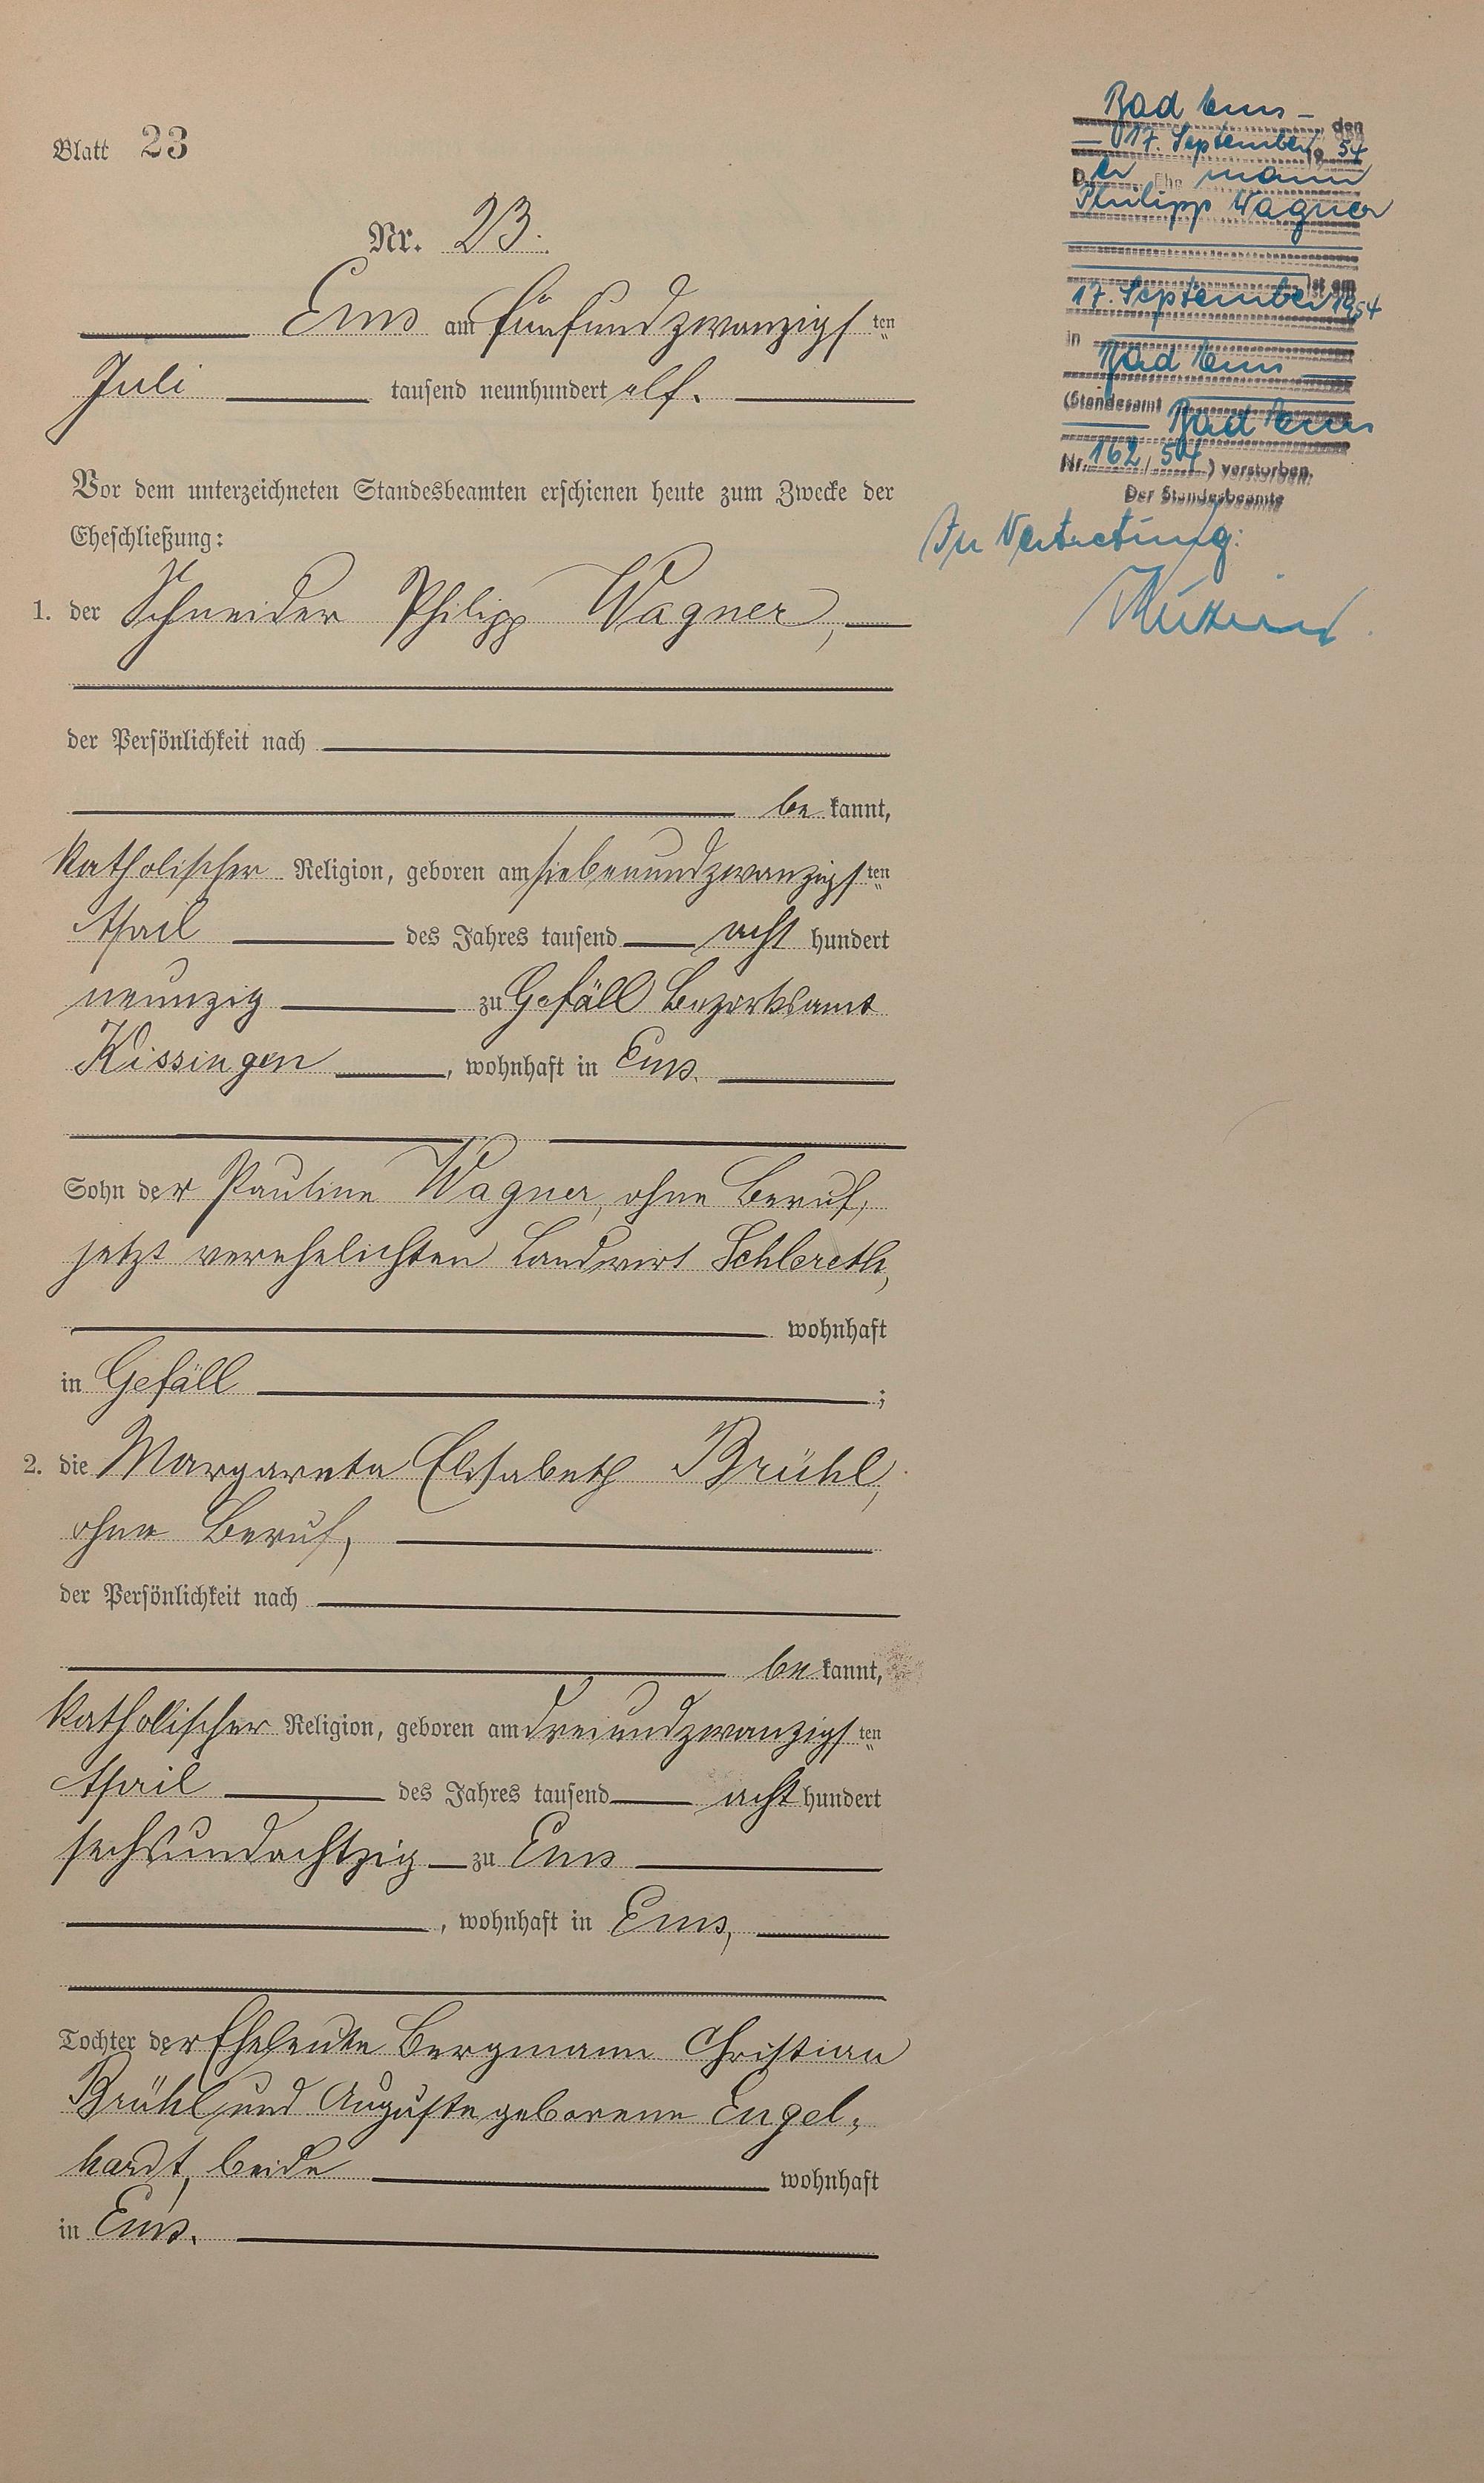 Blatt 23
Nr. 23.
Ems am fünfundzwanzigsten
Juli tausend neunhundert elf.
Vor dem unterzeichneten Standesbeamten erschienen heute zum Zwecke der
Eheschließung:
1. der Schneider Philipp Wagner,
der Persönlichkeit nach
bekannt,
katholischer Religion, geboren am siebenundzwanzigsten
April des Jahres tausend acht hundert
neunzig zu Gefäll Bezirksamt
Kissingen, wohnhaft in Ems.
Sohn der Pauline Wagner, ohne Beruf,
jetzt verehelichten Landwirt Schlereth,
wohnhaft
in Gefäll;
2. die Margareta Elisabeth Brühl,
ohne Beruf,
der Persönlichkeit nach
bekannt,
katholischer Religion, geboren am dreiundzwanzigsten
April des Jahres tausend acht hundert
sechsundachtzig zu Ems
, wohnhaft in Ems,
Tochter der Eheleute Bergmann Christian
Brühl und Auguste geborene Engel-
hardt, beide wohnhaft
in Ems.
Bad Ems, den
17. September 1954
Der Ehemann
Philipp Wagner
ist am
17. September 1954
in Bad Ems
(Standesamt
Bad Ems
Nr. 162/54) verstorben.
Der Standesbeamte
In Vertretung: